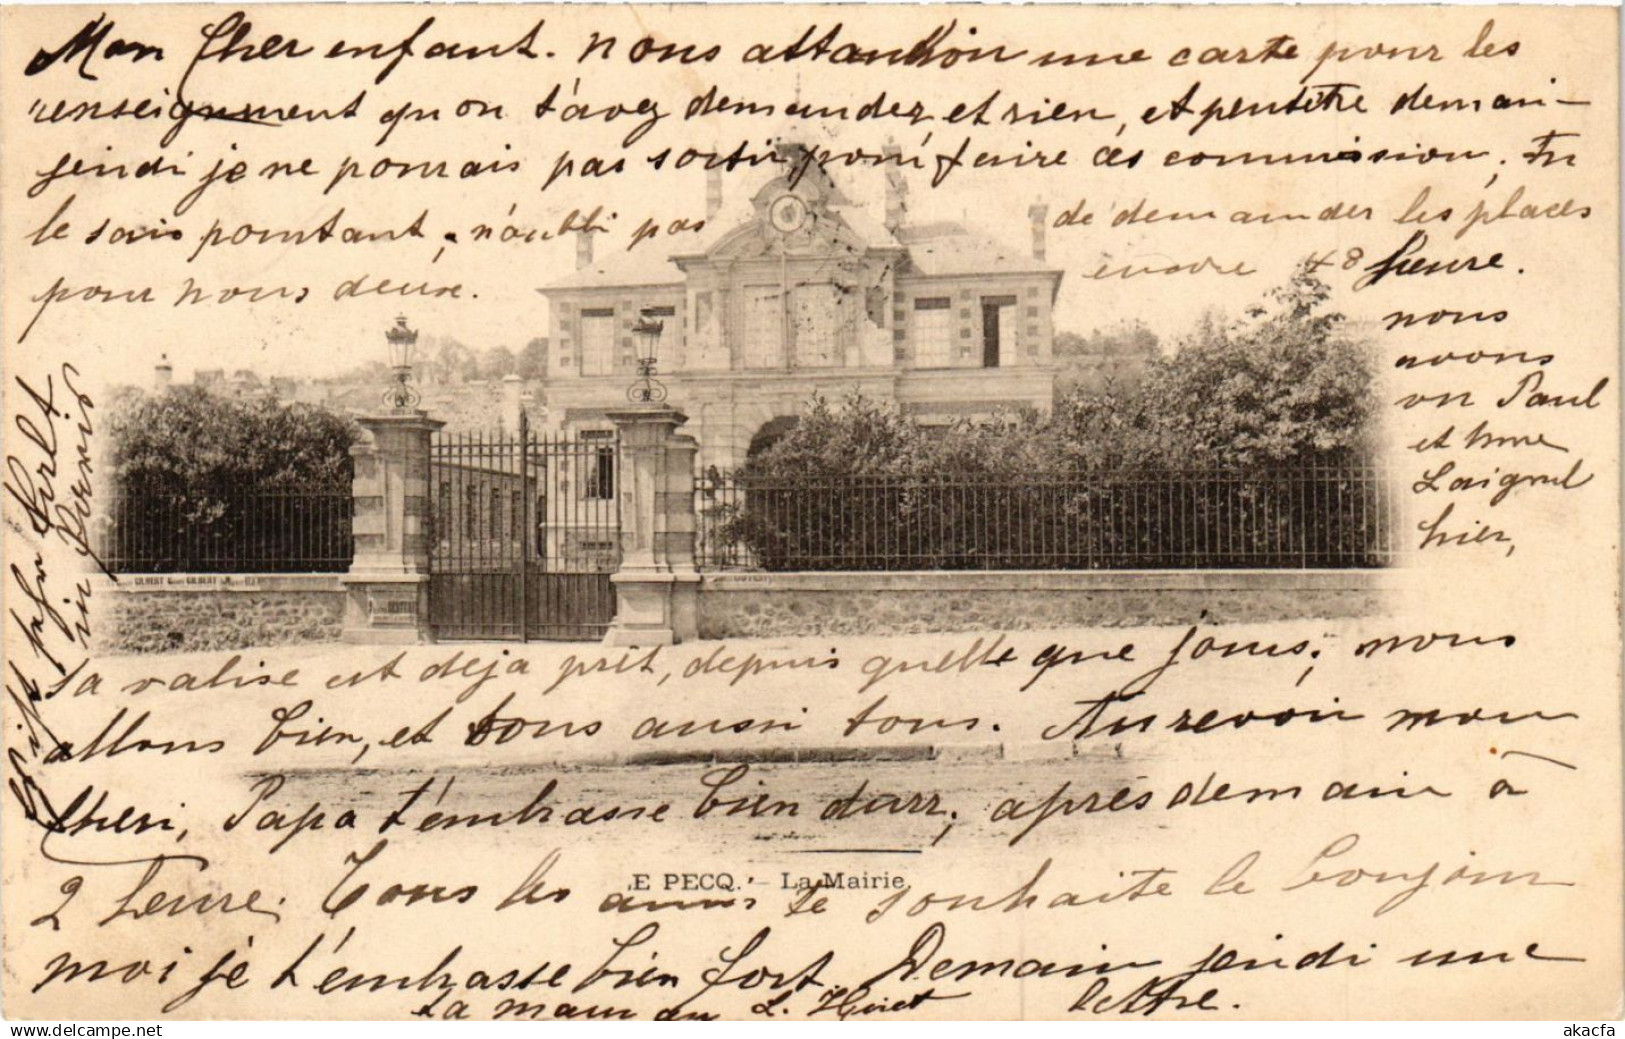 Mon Cher enfant. nous attandion une carte pour les
renseignement qu on t'avez demander, et rien, et peutetre demain
jeudi je ne pourais pas sortir, pour faire des commission, Tu
le sais pourtant, n'oubli pas de demander les places
pour nous deux. encore 48 heure.
nous
avons
vu Paul
et Mme
Laignel
hier,
Ta valise est deja prêt, depuis quelle que jours; nous
allons bien, et tous aussi tous. Au revoir mon
cheri, Papa t'embrasse bien durr, après demain à
2 heure. Tous les amis te souhaite le bonjour
moi je t'embrasse bien fort. Demain jeudi une
lettre.
Ta maman L. Huet
LE PECQ. — La Mairie
akacfa